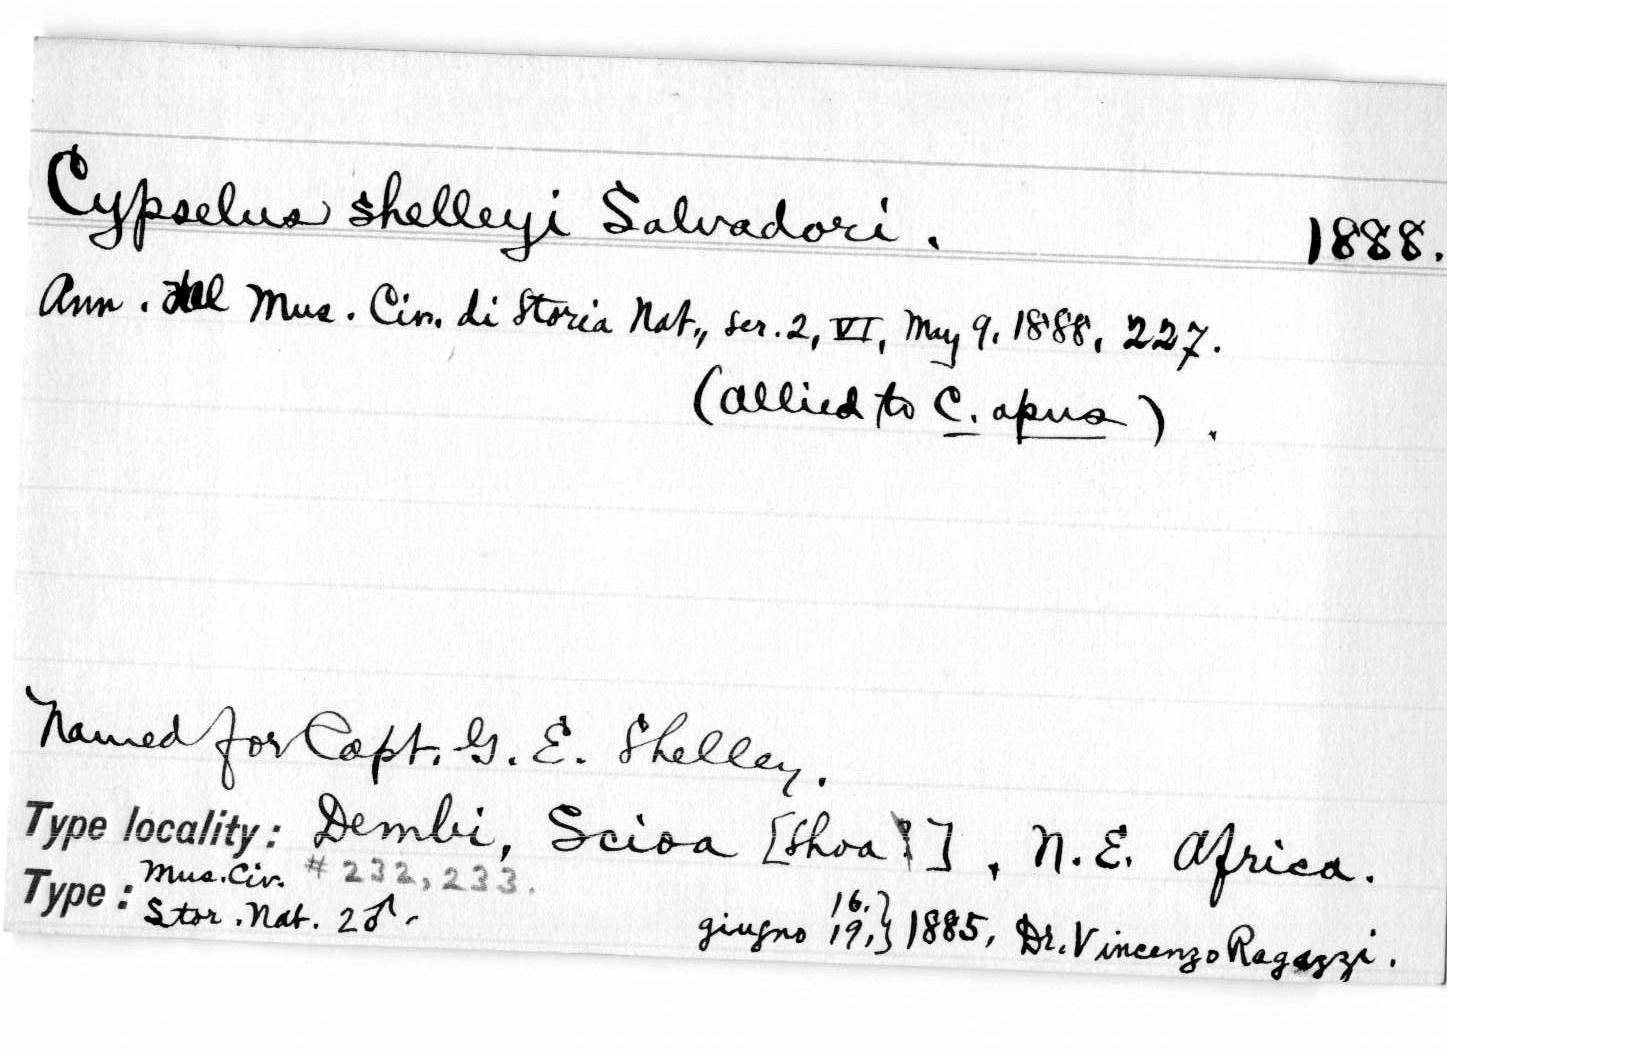 Cypselus shelleyi Salvadori. 1888.
Ann. del Mus. Civ. di Storia Nat., ser. 2, VI, May 9, 1888, 227.
(allied to C. apus).
Named for Capt. G. E. Shelley.
Type locality: Dembi, Scioa [Shoa], N.E. Africa.
Type: Mus. Civ. # 232, 233.
Stor. Nat. 2♂.
giugno 16, 19, } 1885, Dr. Vincenzo Ragazzi.